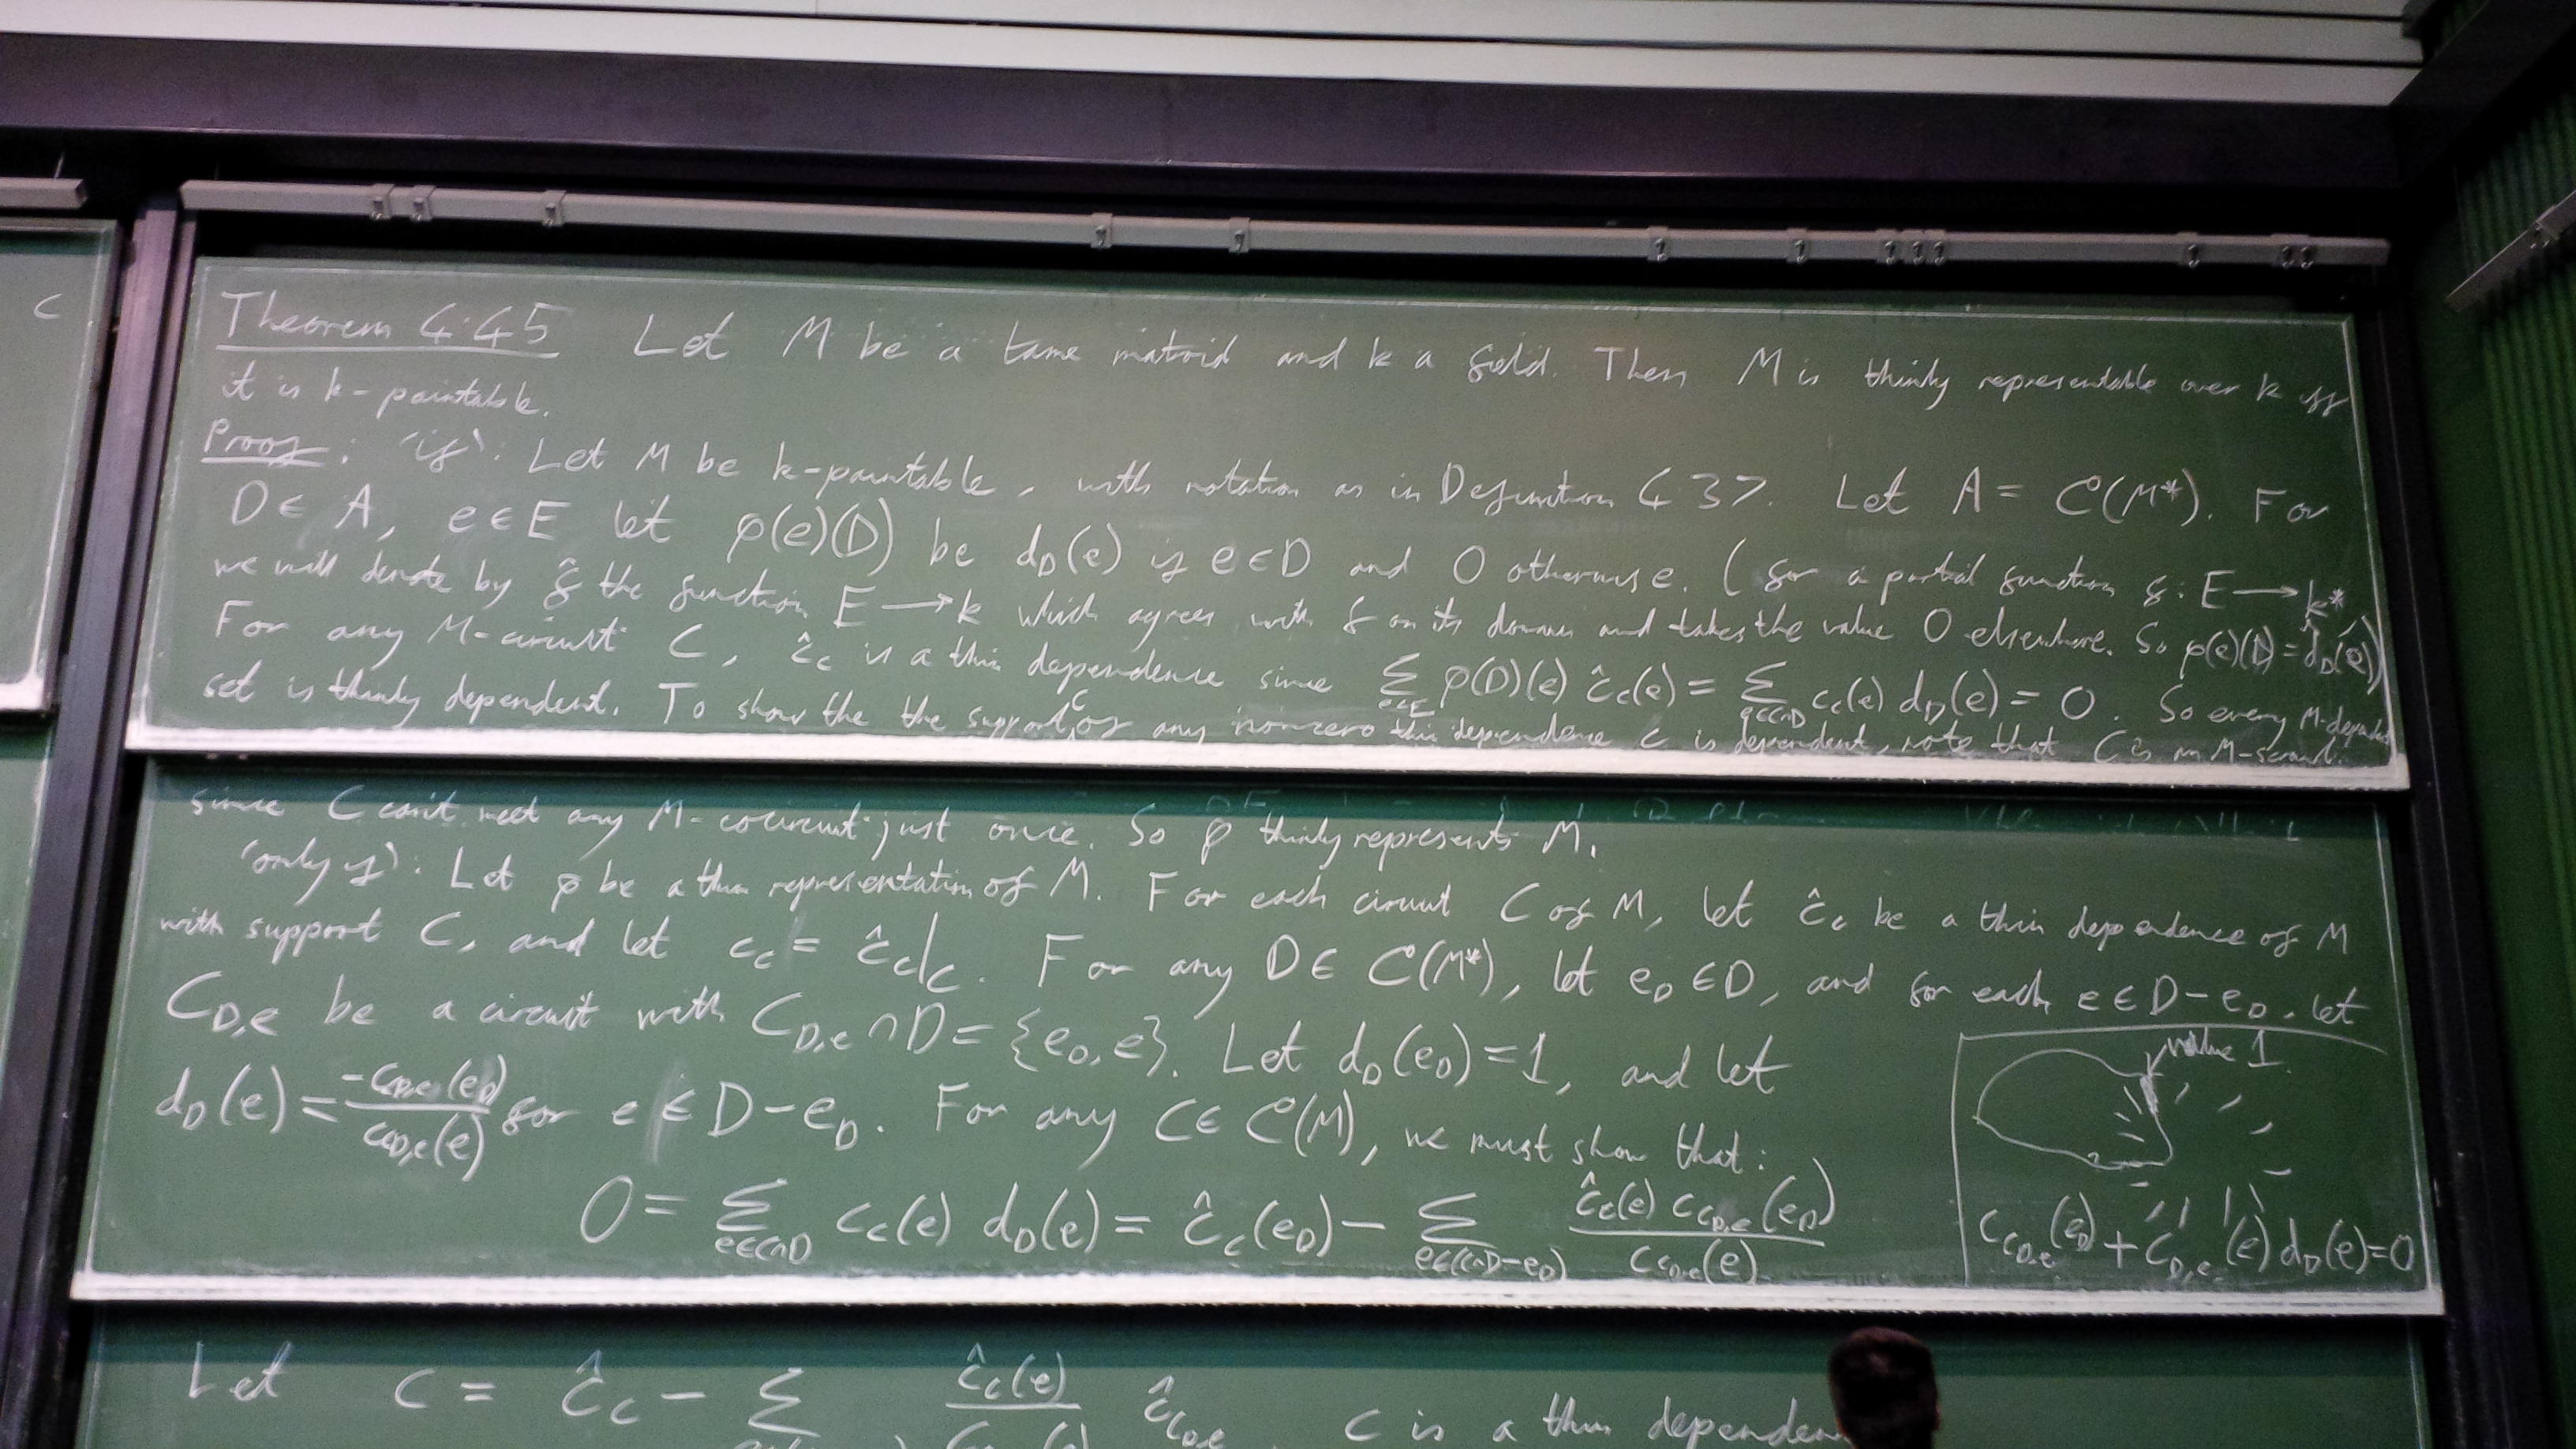 C
Theorem 4.45 Let M be a tame matroid and k a field. Then M is thinly representable over k iff
it is k-paintable.
Proof: 'if': Let M be k-paintable, with notation as in Definition 4.37. Let A = C(M*). For
D ∈ A, e ∈ E let φ(e)(D) be d_D(e) if e ∈ D and 0 otherwise. (for a partial function f: E → k*,
we will denote by f̂ the function E → k which agrees with f on its domain and takes the value 0 elsewhere. So φ(e)(D) = d̂_D(e))
For any M-circuit C, ĉ_C is a thin dependence since ∑_{e∈E} φ(D)(e) ĉ_C(e) = ∑_{e∈C∩D} c_C(e) d_D(e) = 0. So every M-dependent
set is thinly dependent. To show the the support C of any nonzero thin dependence c is dependent, note that C is an M-scrawl.
since C can't meet any M-cocircuit just once. So φ thinly represents M.
'only if': Let φ be a thin representation of M. For each circuit C of M, let ĉ_C be a thin dependence of M
with support C, and let c_C = ĉ_C|_C. For any D ∈ C(M*), let e_D ∈ D, and for each e ∈ D - e_D, let
C_{D,e} be a circuit with C_{D,e} ∩ D = {e_D, e}. Let d_D(e_D) = 1, and let
value 1.
d_D(e) = -c_{C_{D,e}}(e_D) / c_{C_{D,e}}(e) for e ∈ D - e_D. For any C ∈ C(M), we must show that:
0 = ∑_{e∈C∩D} c_C(e) d_D(e) = ĉ_C(e_D) - ∑_{e∈(C∩D-e_D)} ĉ_C(e) c_{C_{D,e}}(e_D) / c_{C_{D,e}}(e)
c_{C_{D,e}}(e_D) + c_{C_{D,e}}(e) d_D(e) = 0
Let c = ĉ_C - ∑ ĉ_C(e) ĉ_{C_{D,e}} c is a thin